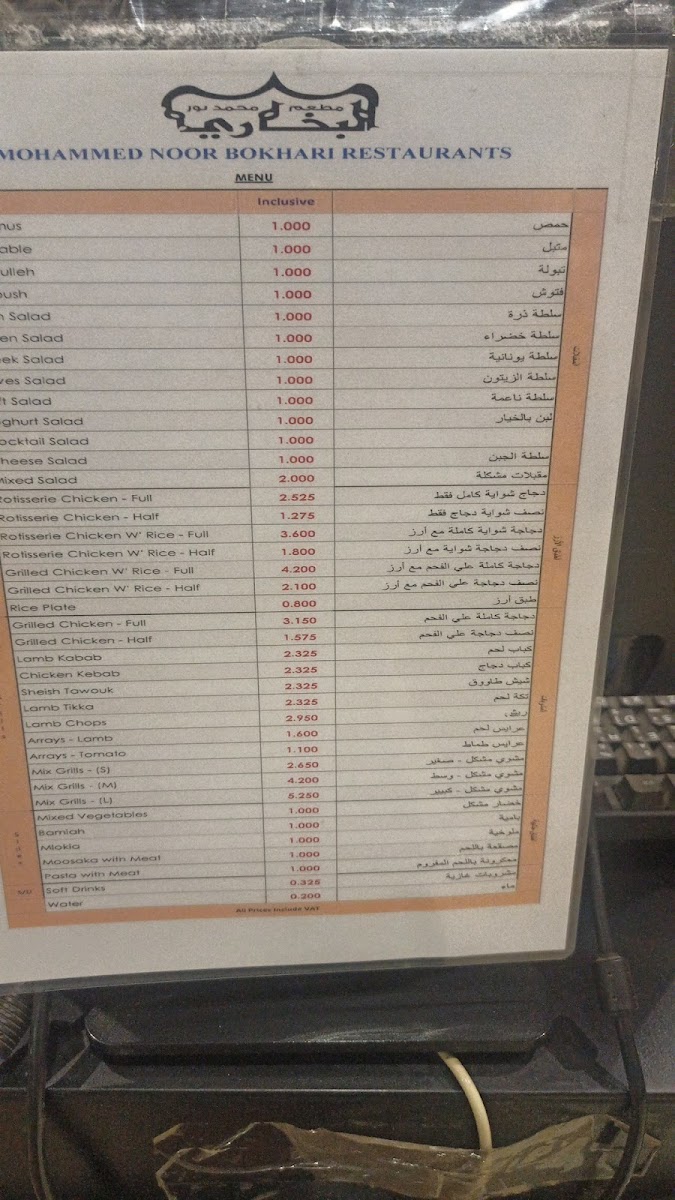 مطعم محمد نور
البخاري
MOHAMMED NOOR BOKHARI RESTAURANTS
MENU
Inclusive
nus 1.000 حمص
able 1.000 متبل
ulleh 1.000 تبولة
oush 1.000 فتوش
n Salad 1.000 سلطة ذرة
en Salad 1.000 سلطة خضراء
ek Salad 1.000 سلطة يونانية
ves Salad 1.000 سلطة الزيتون
ft Salad 1.000 سلطة ناعمة
ghurt Salad 1.000 لبن بالخيار
ocktail Salad 1.000
heese Salad 1.000 سلطة الجبن
Mixed Salad 2.000 مقبلات مشكلة
Rotisserie Chicken - Full 2.525 دجاج شواية كامل فقط
Rotisserie Chicken - Half 1.275 نصف شواية دجاج فقط
Rotisserie Chicken W' Rice - Full 3.600 دجاجة شواية كاملة مع أرز
Rotisserie Chicken W' Rice - Half 1.800 نصف دجاجة شواية مع أرز
Grilled Chicken W' Rice - Full 4.200 دجاجة كاملة علي الفحم مع أرز
Grilled Chicken W' Rice - Half 2.100 نصف دجاجة علي الفحم مع أرز
Rice Plate 0.800 طبق أرز
Grilled Chicken - Full 3.150 دجاجة كاملة علي الفحم
Grilled Chicken - Half 1.575 نصف دجاجة علي الفحم
Lamb Kabab 2.325 كباب لحم
Chicken Kebab 2.325 كباب دجاج
Sheish Tawouk 2.325 شيش طاووق
Lamb Tikka 2.325 تكة لحم
Lamb Chops 2.950
Arrays - Lamb 1.600 عرايس لحم
Arrays - Tomato 1.100 عرايس طماط
Mix Grills - (S) 2.650 مشوي مشكل - صغير
Mix Grills - (M) 4.200 مشوي مشكل - وسط
Mix Grills - (L) 5.250 مشوي مشكل - كبير
Mixed Vegetables 1.000 خضار مشكل
Bamiah 1.000 بامية
Mlokia 1.000 ملوخية
Moosaka with Meat 1.000 مصقعة باللحم
Pasta with Meat 1.000 معكرونة باللحم المفروم
Soft Drinks 0.325 مشروبات غازية
Water 0.200 ماء
All Prices Include VAT